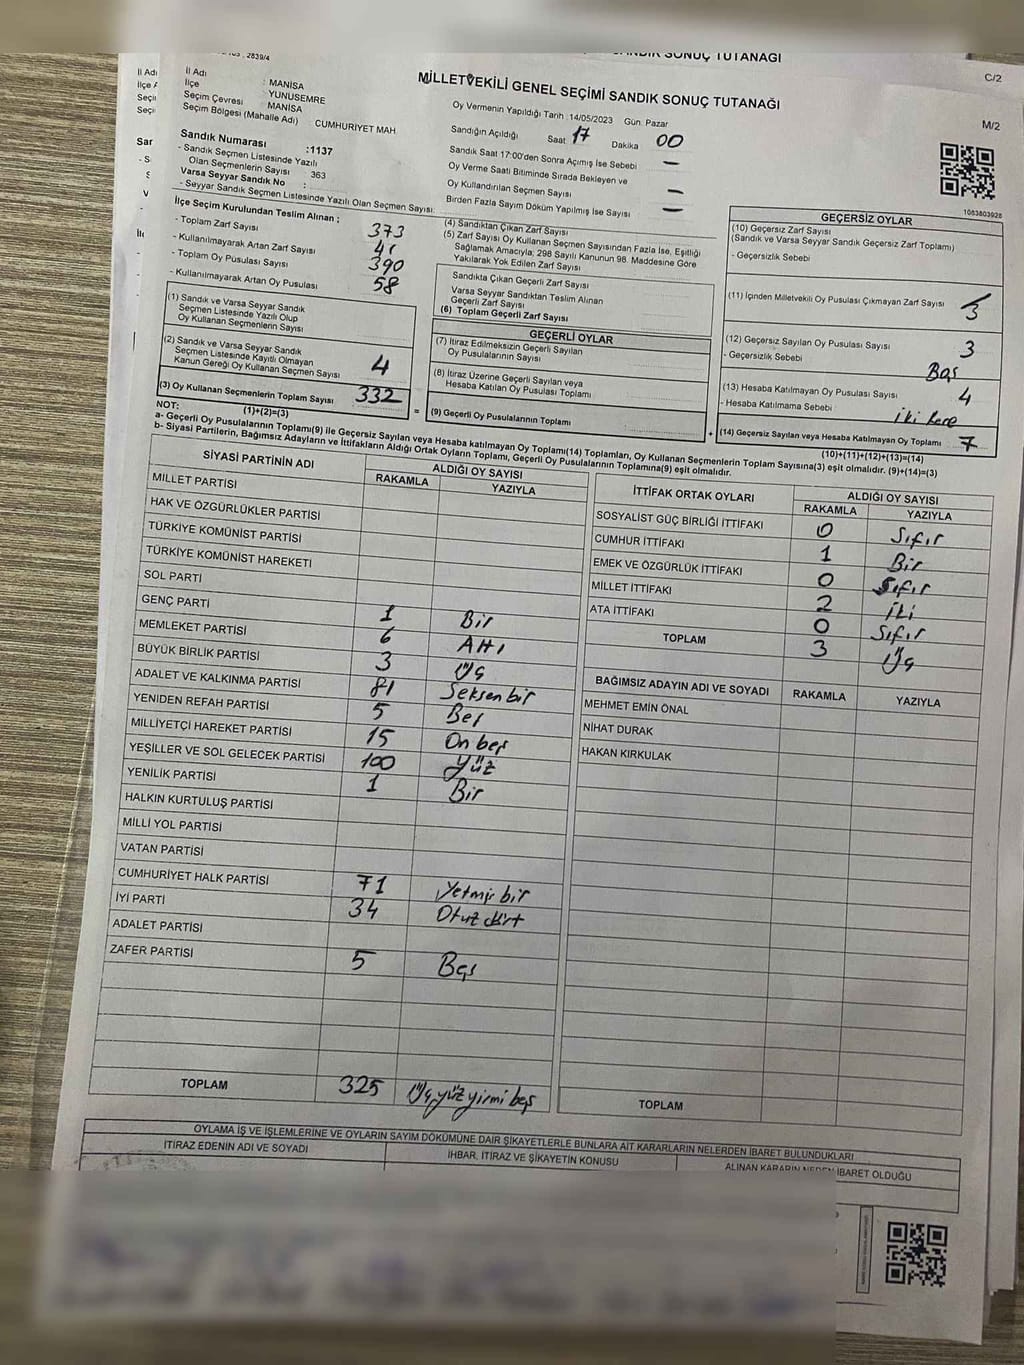 2839/4
SANDIK SONUÇ TUTANAĞI
C/2
MİLLETVEKİLİ GENEL SEÇİMİ SANDIK SONUÇ TUTANAĞI
M/2
İl Adı : MANİSA
İlçe : YUNUSEMRE
Seçim Çevresi : MANİSA
Seçim Bölgesi (Mahalle Adı) CUMHURİYET MAH
Oy Vermenin Yapıldığı Tarih :14/05/2023 Gün: Pazar
Sandığın Açıldığı Saat 17 Dakika 00
Sandık Saat 17:00'den Sonra Açılmış İse Sebebi —
Oy Verme Saati Bitiminde Sırada Bekleyen ve
Oy Kullandırılan Seçmen Sayısı —
Birden Fazla Sayım Döküm Yapılmış İse Sayısı —
Sandık Numarası :1137
- Sandık Seçmen Listesinde Yazılı
Olan Seçmenlerin Sayısı : 363
Varsa Seyyar Sandık No :
- Seyyar Sandık Seçmen Listesinde Yazılı Olan Seçmen Sayısı:
1083803928
İlçe Seçim Kurulundan Teslim Alınan ;
- Toplam Zarf Sayısı 373
- Kullanılmayarak Artan Zarf Sayısı 41
- Toplam Oy Pusulası Sayısı 390
- Kullanılmayarak Artan Oy Pusulası 58
(1) Sandık ve Varsa Seyyar Sandık
Seçmen Listesinde Yazılı Olup
Oy Kullanan Seçmenlerin Sayısı
(2) Sandık ve Varsa Seyyar Sandık
Seçmen Listesinde Kayıtlı Olmayan
Kanun Gereği Oy Kullanan Seçmen Sayısı 4
(3) Oy Kullanan Seçmenlerin Toplam Sayısı 332
(1)+(2)=(3)
(4) Sandıktan Çıkan Zarf Sayısı
(5) Zarf Sayısı Oy Kullanan Seçmen Sayısından Fazla İse, Eşitliği
Sağlamak Amacıyla; 298 Sayılı Kanunun 98. Maddesine Göre
Yakılarak Yok Edilen Zarf Sayısı
Sandıkta Çıkan Geçerli Zarf Sayısı
Varsa Seyyar Sandıktan Teslim Alınan
Geçerli Zarf Sayısı
(6) Toplam Geçerli Zarf Sayısı
GEÇERLİ OYLAR
(7) İtiraz Edilmeksizin Geçerli Sayılan
Oy Pusulalarının Sayısı
(8) İtiraz Üzerine Geçerli Sayılan veya
Hesaba Katılan Oy Pusulası Toplamı
=
(9) Geçerli Oy Pusulalarının Toplamı
+
GEÇERSİZ OYLAR
(10) Geçersiz Zarf Sayısı
(Sandık ve Varsa Seyyar Sandık Geçersiz Zarf Toplamı)
- Geçersizlik Sebebi
(11) İçinden Milletvekili Oy Pusulası Çıkmayan Zarf Sayısı
(12) Geçersiz Sayılan Oy Pusulası Sayısı 3
- Geçersizlik Sebebi Boş
(13) Hesaba Katılmayan Oy Pusulası Sayısı 4
- Hesaba Katılmama Sebebi iki kere
(14) Geçersiz Sayılan veya Hesaba Katılmayan Oy Toplamı 7
(10)+(11)+(12)+(13)=(14)
NOT:
a- Geçerli Oy Pusulalarının Toplamı(9) ile Geçersiz Sayılan veya Hesaba katılmayan Oy Toplamı(14) Toplamları, Oy Kullanan Seçmenlerin Toplam Sayısına(3) eşit olmalıdır. (9)+(14)=(3)
b- Siyasi Partilerin, Bağımsız Adayların ve İttifakların Aldığı Ortak Oyların Toplamı, Geçerli Oy Pusulalarının Toplamına(9) eşit olmalıdır.
SİYASİ PARTİNİN ADI ALDIĞI OY SAYISI
RAKAMLA YAZIYLA
MİLLET PARTİSİ
HAK VE ÖZGÜRLÜKLER PARTİSİ
TÜRKİYE KOMÜNİST PARTİSİ
TÜRKİYE KOMÜNİST HAREKETİ
SOL PARTİ
GENÇ PARTİ 1 Bir
MEMLEKET PARTİSİ 6 Altı
BÜYÜK BİRLİK PARTİSİ 3 Üç
ADALET VE KALKINMA PARTİSİ 81 Seksen bir
YENİDEN REFAH PARTİSİ 5 Beş
MİLLİYETÇİ HAREKET PARTİSİ 15 On beş
YEŞİLLER VE SOL GELECEK PARTİSİ 100 Yüz
YENİLİK PARTİSİ 1 Bir
HALKIN KURTULUŞ PARTİSİ
MİLLİ YOL PARTİSİ
VATAN PARTİSİ
CUMHURİYET HALK PARTİSİ 71 Yetmiş bir
İYİ PARTİ 34 Otuz dört
ADALET PARTİSİ
ZAFER PARTİSİ 5 Beş
TOPLAM 325 Üç yüz yirmi beş
İTTİFAK ORTAK OYLARI ALDIĞI OY SAYISI
RAKAMLA YAZIYLA
SOSYALİST GÜÇ BİRLİĞİ İTTİFAKI 0 Sıfır
CUMHUR İTTİFAKI 1 Bir
EMEK VE ÖZGÜRLÜK İTTİFAKI 0 Sıfır
MİLLET İTTİFAKI 2 İki
ATA İTTİFAKI 0 Sıfır
TOPLAM 3 Üç
BAĞIMSIZ ADAYIN ADI VE SOYADI RAKAMLA YAZIYLA
MEHMET EMİN ÖNAL
NİHAT DURAK
HAKAN KIRKULAK
TOPLAM
OYLAMA İŞ VE İŞLEMLERİNE VE OYLARIN SAYIM DÖKÜMÜNE DAİR ŞİKAYETLERLE BUNLARA AİT KARARLARIN NELERDEN İBARET BULUNDUKLARI
İTİRAZ EDENİN ADI VE SOYADI İHBAR, İTİRAZ VE ŞİKAYETİN KONUSU ALINAN KARARIN NEDEN İBARET OLDUĞU